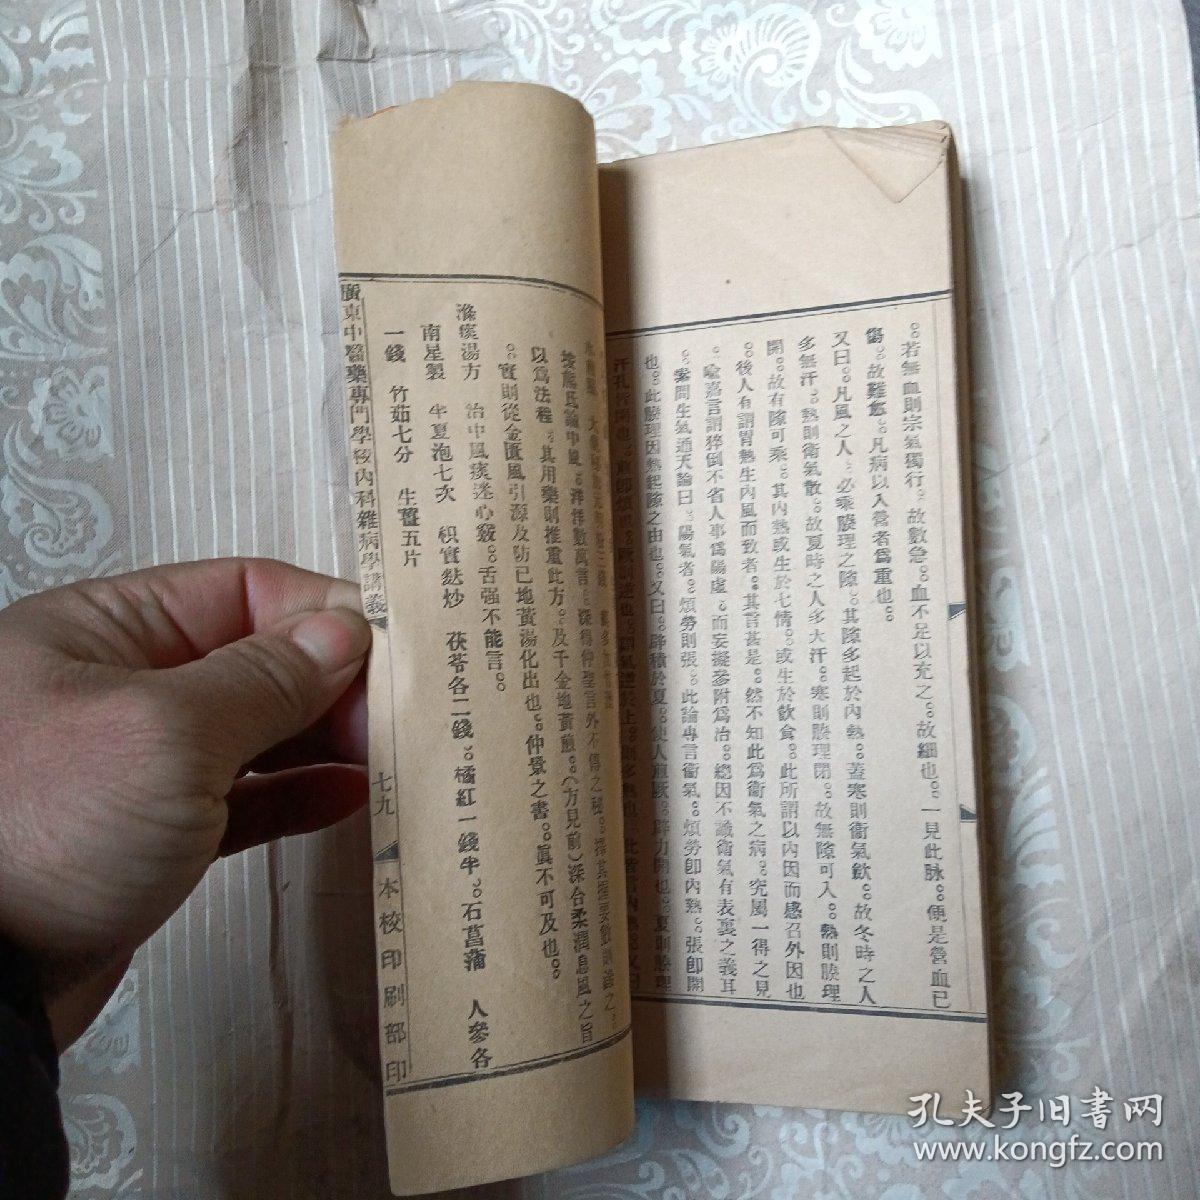 。。若無血則宗氣獨行。故數急。。血不足以充之。。故細也。。一見此脉。。便是營血已
傷。。故難愈。。凡病以入營者爲重也。。
又曰。。凡風之人。必乘腠理之隙。。其隙多起於內熱。。蓋寒則衞氣歛。。故冬時之人
多無汗。。熱則衞氣散。。故夏時之人多大汗。。寒則腠理閉。。故無隙可入。。熱則腠理
開。。故有隙可乘。。其內熱或生於七情。。或生於飲食。。此所謂以內因而感召外因也
。。後人有謂胃熱生內風而致者。。其言甚是。。然不知此爲衞氣之病。。究屬一得之見
。喩嘉言謂猝倒不省人事爲陽虛。。而妄擬參附爲治。。總因不識衞氣有表裏之義耳
。。素問生氣通天論曰。。陽氣者。。煩勞則張。。此論專言衞氣。。煩勞卽內熱。。張卽開
也。。此腠理因熱起隙之由也。。又曰。。辟積於夏。。使人煎厥。。辟力開也。。夏則腠理
汗孔皆開也
按龐氏論中風。。洋洋數萬言。。深得仲聖言外不傳之秘。。
以爲法程。。其用藥則推重此方。。及千金地黃煎。。(方見前)深合柔潤息風之旨
。。實則從金匱風引源及防已地黃湯化出也。。仲景之書。。眞不可及也。。
滌痰湯方 治中風痰迷心竅。。舌强不能言。。
南星製 半夏泡七次 枳實麩炒 茯苓各二錢。。橘紅一錢半。。石菖蒲 人參各
一錢 竹茹七分 生薑五片
廣東中醫藥專門學校內科雜病學講義
七九
本校印刷部印
孔夫子旧书网
www.kongfz.com